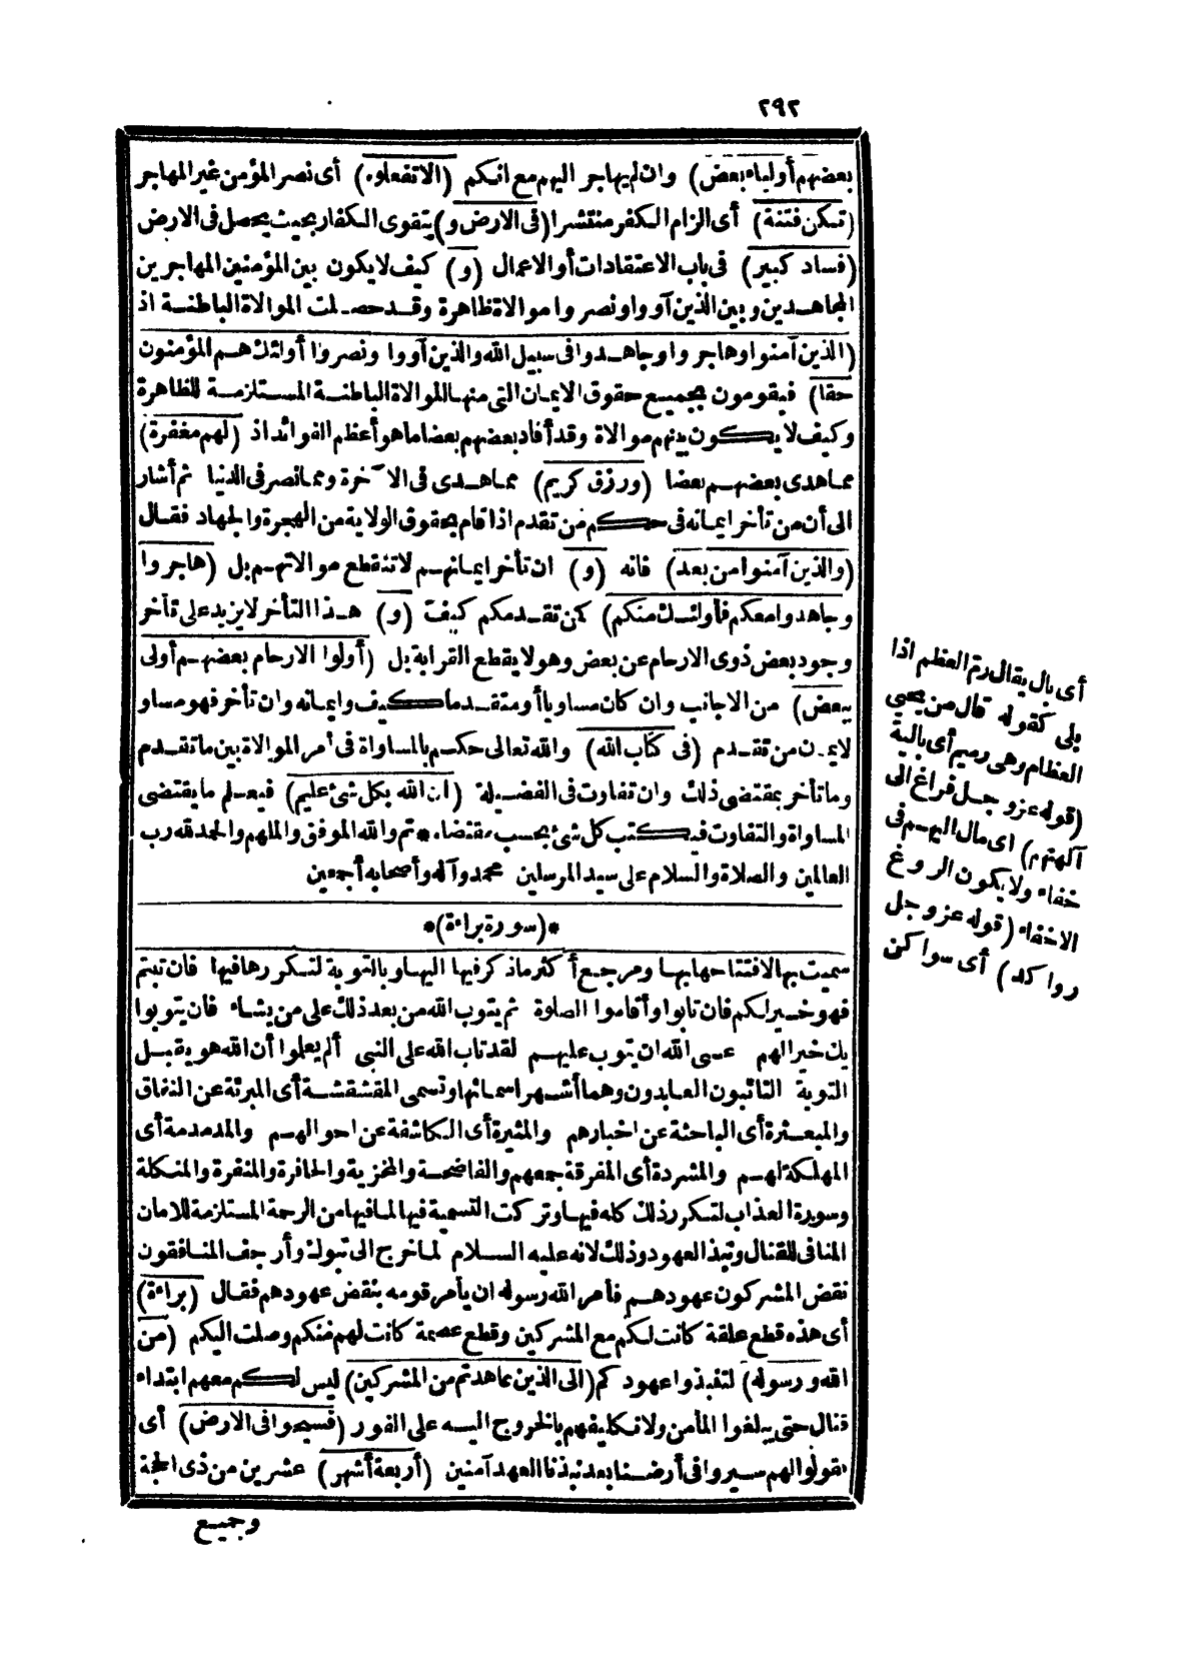 ٢٩٢
بعضهم أولياء بعض) وان لم يهاجر اليهم مع انكم (الاتفعلوه) أى نصر المؤمن غير المهاجر
(تكن فتنة) أى الزام الكفر منتشرا (فى الارض و) يتقوى الكفار بحيث يحصل فى الارض
(فساد كبير) فى باب الاعتقادات أو الاعمال (و) كيف لا يكون بين المؤمنين المهاجرين
المجاهدين وبين الذين آووا ونصروا موالاة ظاهرة وقد حصلت الموالاة الباطنة اذ
(الذين آمنوا وهاجروا وجاهدوا فى سبيل الله والذين آووا ونصروا أولئك هم المؤمنون
حقا) فيقومون بجميع حقوق الايمان التى منها الموالاة الباطنة المستلزمة للظاهرة
وكيف لا يكون بينهم موالاة وقد أفاد بعضهم بعضا ما هو أعظم الفوائد اذ (لهم مغفرة)
مما هدى بعضهم بعضا (ورزق كريم) مما هدى فى الآخرة ومما نصر فى الدنيا ثم أشار
الى أن من تأخر ايمانه فى حكم من تقدم اذا قام بحقوق الولاية من الهجرة والجهاد فقال
(والذين آمنوا من بعد) فانه (و) ان تأخر ايمانهم لا تنقطع موالاتهم بل (هاجروا
وجاهدوا معكم فأولئك منكم) كمن تقدمكم كيف (و) هذا التأخر لا يزيد على تأخر
وجود بعض ذوى الارحام عن بعض وهو لا يقطع القرابة بل (أولوا الارحام بعضهم أولى
ببعض) من الاجانب وان كان مساويا أو متقدما كيف وايمانه وان تأخر فهو مساو
لايمان من تقدم (فى كتاب الله) والله تعالى حكم بالمساواة فى أمر الموالاة بين ما تقدم
وما تأخر بمقتضى ذلك وان تفاوت فى الفضيلة (ان الله بكل شئ عليم) فيعلم ما يقتضى
المساواة والتفاوت فيكتب كل شئ بحسب مقتضاه * تم والله الموفق والملهم والحمد لله رب
العالمين والصلاة والسلام على سيد المرسلين محمد وآله وأصحابه أجمعين
*(سورة براءة)*
سميت بها لافتتاحها بها ومرجع أكثر ما ذكر فيها اليها وبالتوبة لتكررها فيها فان تبتم
فهو خير لكم فان تابوا وأقاموا الصلوة ثم يتوب الله من بعد ذلك على من يشاء فان يتوبوا
يك خيرا لهم عسى الله ان يتوب عليهم لقد تاب الله على النبى ألم يعلموا أن الله هو يقبل
التوبة التائبون العابدون وهما أشهر اسمائها وتسمى المقشقشة أى المبرئة عن النفاق
والمبعثرة أى الباحثة عن اخبارهم والمثيرة أى الكاشفة عن احوالهم والمدمدمة أى
المهلكة لهم والمشردة أى المفرقة جمعهم والفاضحة والمخزية والحافرة والمنفرة والمنكلة
وسورة العذاب لتكرر ذلك كله فيها وتركت التسمية فيها لما فيها من الرحمة المستلزمة للامان
المنافى للقتال ونبذ العهود وذلك لانه عليه السلام لما خرج الى تبوك وأرجف المنافقون
نقض المشركون عهودهم فأمر الله رسوله ان يأمر قومه بنقض عهودهم فقال (براءة)
أى هذه قطع علقة كانت لكم مع المشركين وقطع عصمة كانت لهم منكم وصلت اليكم (من
الله ورسوله) لتنبذوا عهودكم (الى الذين عاهدتم من المشركين) ليس لكم معهم ابتداء
قتال حتى يبلغوا المأمن ولا تكليفهم بالخروج اليه على الفور (فسيحوا فى الارض) أى
يقولوا لهم سيروا فى أرضنا بعد نبذنا العهد آمنين (أربعة أشهر) عشرين من ذى الحجة
وجميع
أى بال يقال رم العظم اذا
بلى كقوله قال من يحيى
العظام وهى رميم أى بالية
(قوله عز وجل فراغ الى
آلهتهم) اى مال اليهم فى
خفاء ولا يكون الروغ
الاخفاء (قوله عز وجل
رواكد) أى سواكن